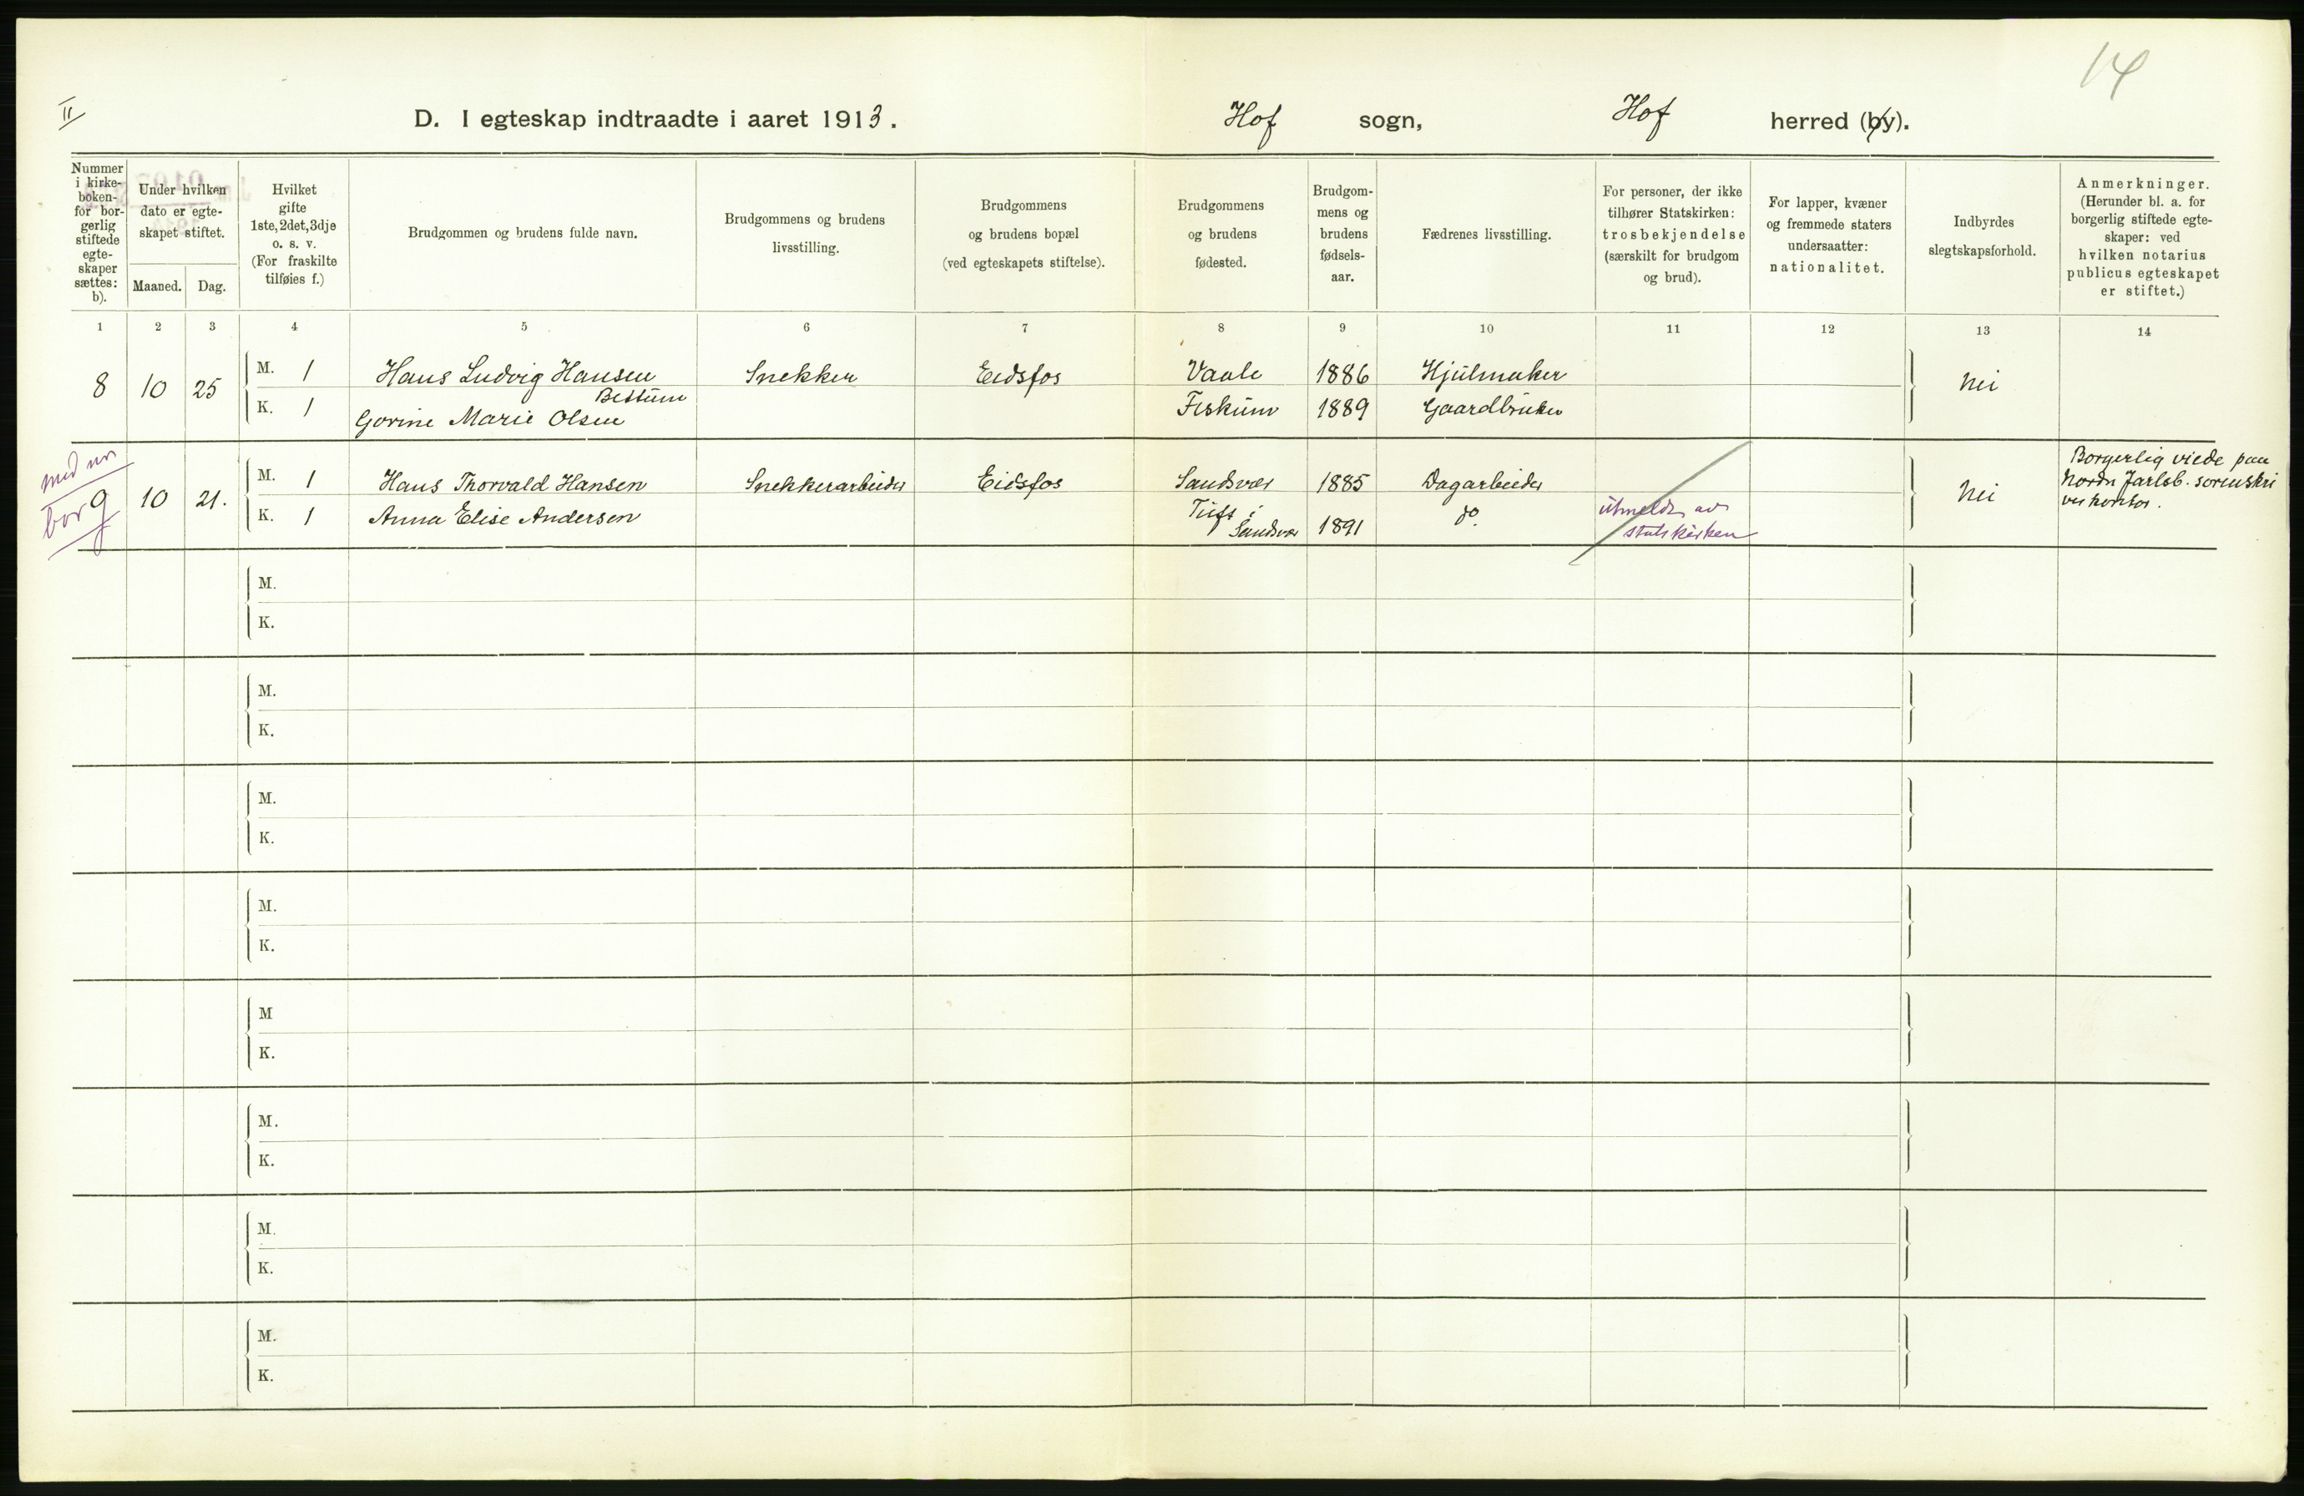 14
II
D. I egteskap indtraadte i aaret 1913. Hof sogn, Hof herred (by).
Nummer i kirke-boken- for bor-gerlig stiftede egte-skaper sættes: b).
Under hvilken dato er egte-skapet stiftet.
Maaned. Dag.
Hvilket gifte 1ste, 2det, 3dje o. s. v. (For fraskilte tilføies f.)
Brudgommen og brudens fulde navn.
Brudgommens og brudens livsstilling.
Brudgommens og brudens bopæl (ved egteskapets stiftelse).
Brudgommens og brudens fødested.
Brudgom-mens og brudens fødsels-aar.
Fædrenes livsstilling.
For personer, der ikke tilhører Statskirken: trosbekjendelse (særskilt for brudgom og brud).
For lapper, kvæner og fremmede staters undersaatter: nationalitet.
Indbyrdes slegtskapsforhold.
Anmerkninger. (Herunder bl. a. for borgerlig stiftede egte-skaper: ved hvilken notarius publicus egteskapet er stiftet.)
1 2 3 4 5 6 7 8 9 10 11 12 13 14
8 10 25 M. 1 Hans Ludvig Hansen Snekker Eidsfos Vaale 1886 Hjulmaker Nei
Bestum
K. 1 Gorine Marie Olsen Fiskum 1889 Gaardbruker
med nr
bor 9 10 21. M. 1 Hans Thorvald Hansen Snekkerarbeider Eidsfos Sandsvær 1885 Dagarbeider Nei
K. 1 Anna Elise Andersen Tuft i Sandsvær 1891 do.
utmeldt av
statskirken
Borgerlig viede paa
Nordr Jarlsb. sorenskri
verkontor.
M.
K.
M.
K.
M.
K.
M.
K.
M
K.
M.
K.
M.
K.
M.
K.